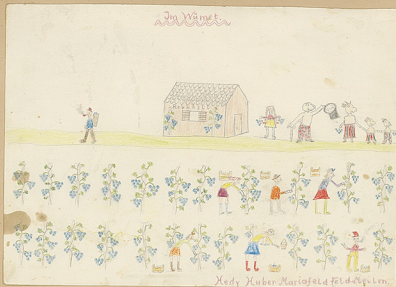 Im Wümet.
Hedy Huber. Mariafeld Feldmeilen.